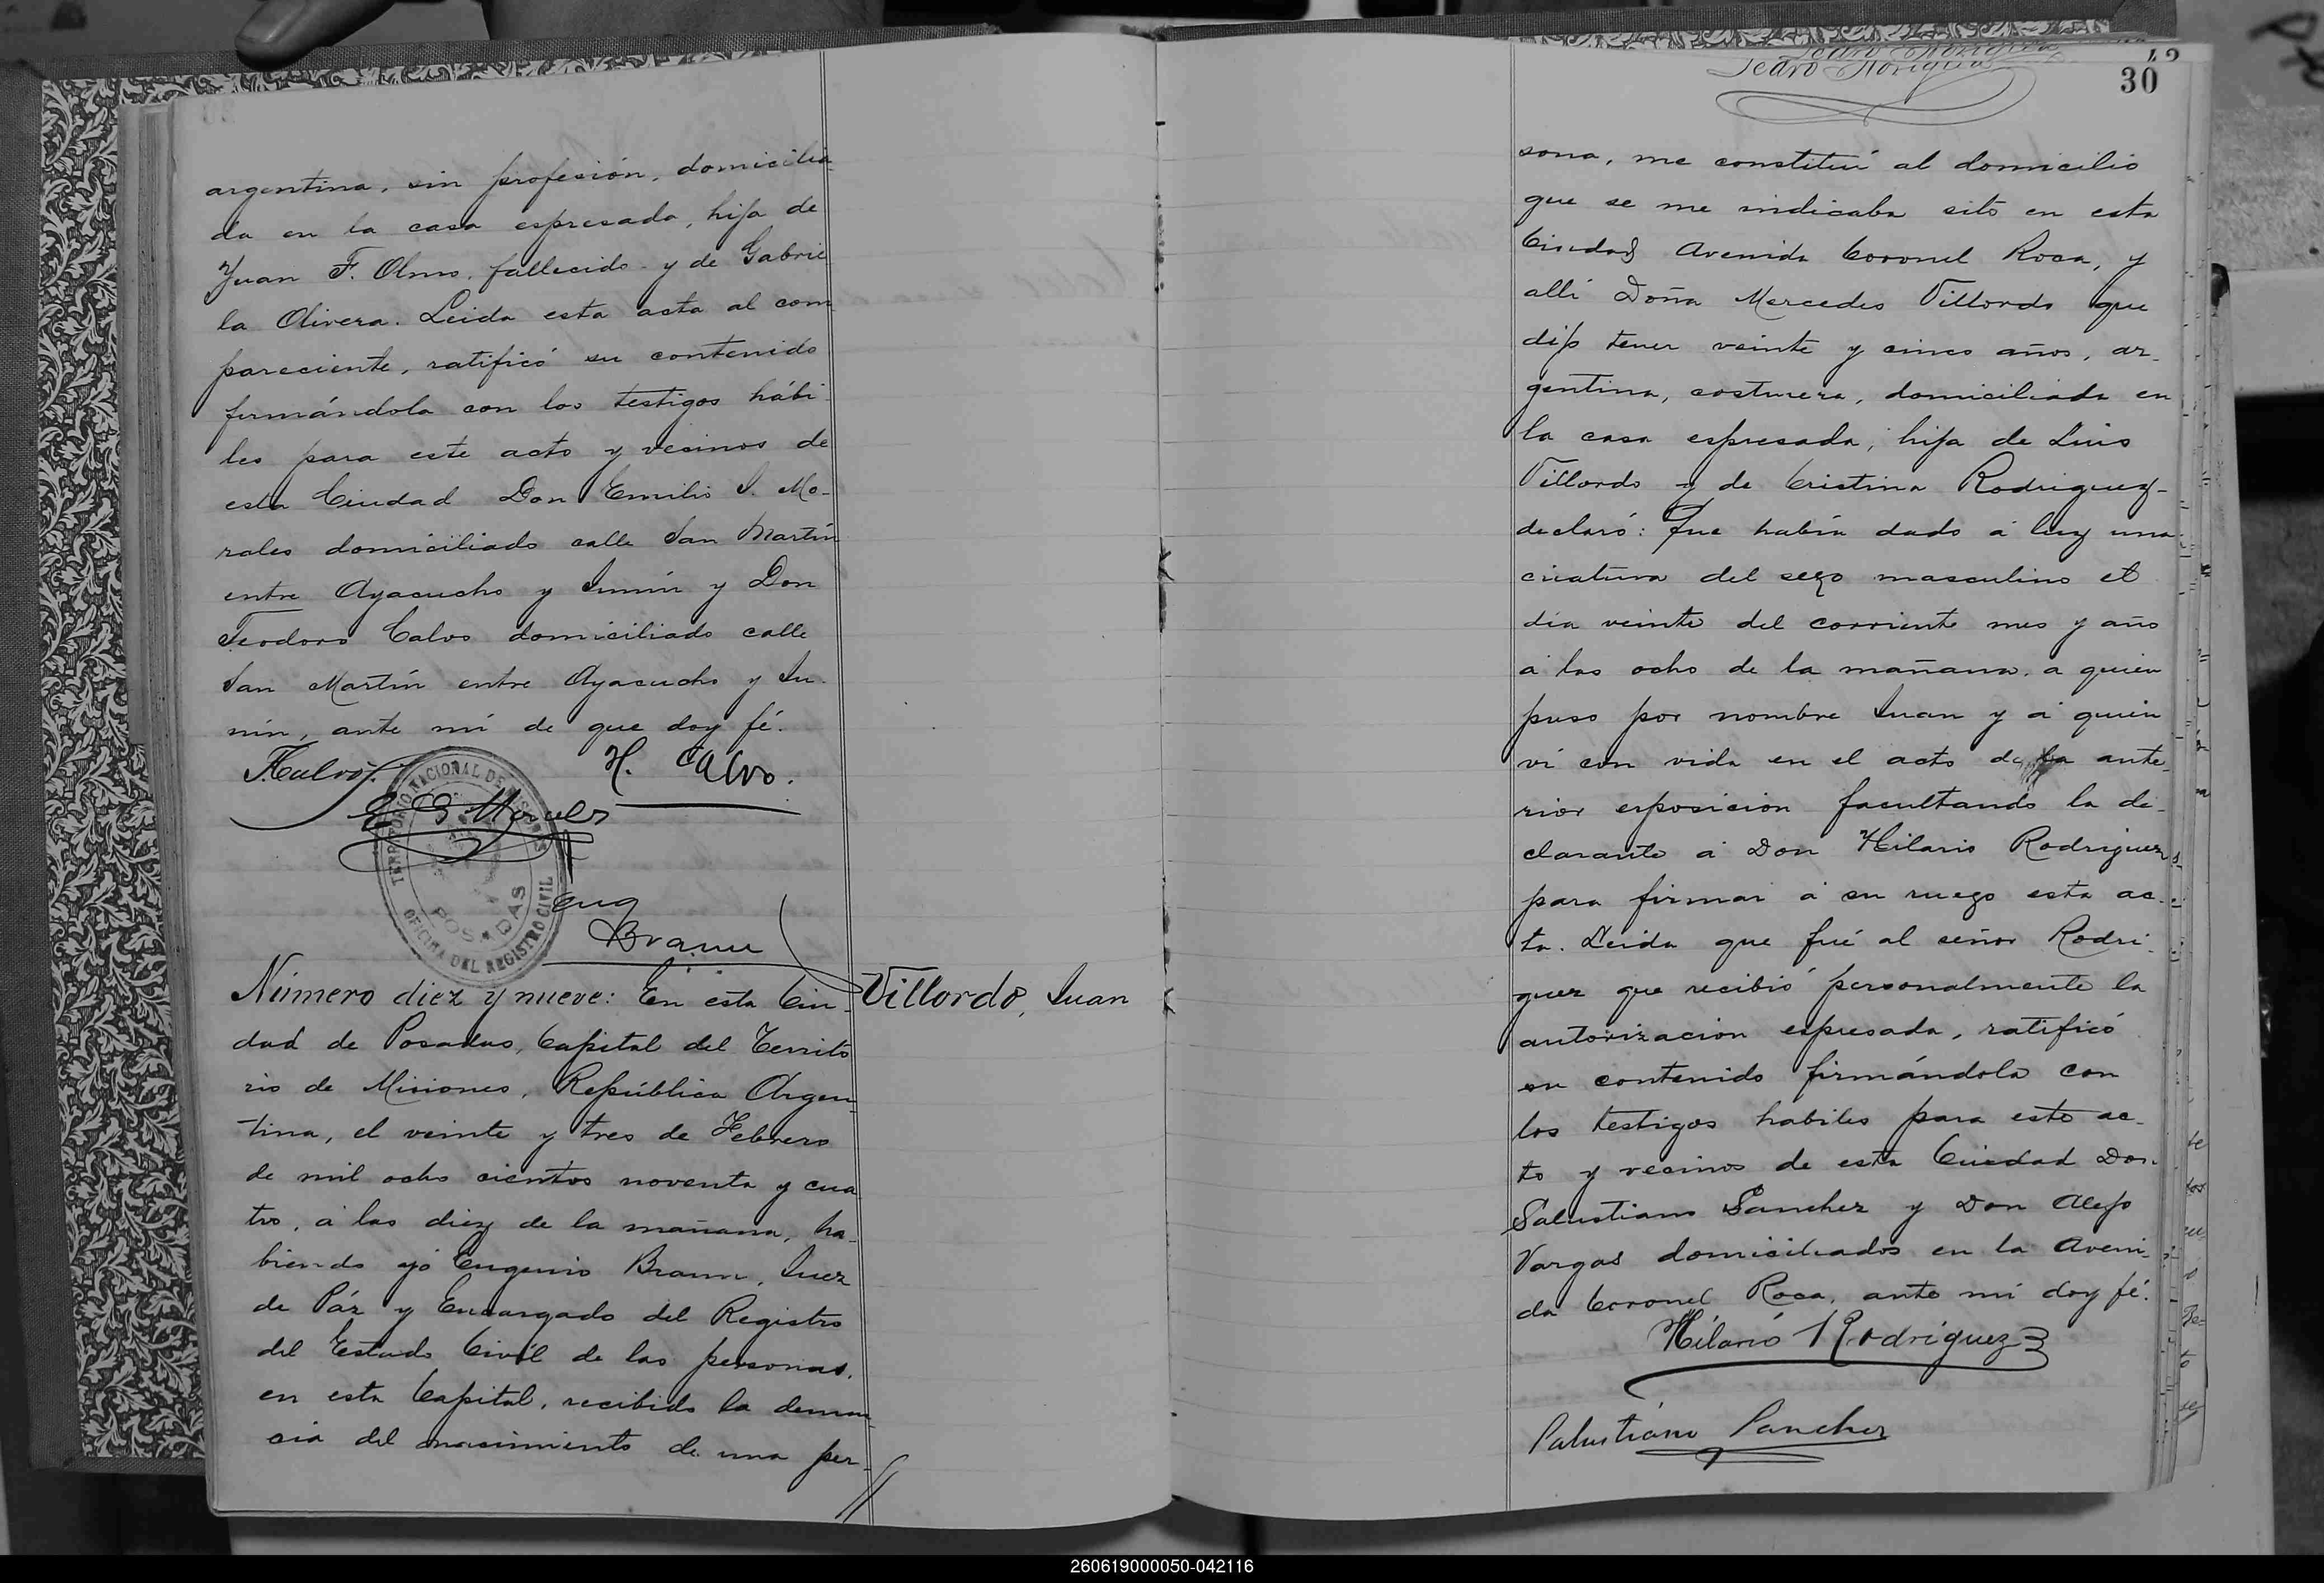 argentina, sin profesión, domicilia
da en la casa espresada, hija de
Juan F. Olmo, fallecido y de Gabrie
la Olivera. Leida esta acta al com
pareciente, ratificó su contenido
firmándola con los testigos hábi
les para este acto y vecinos de
esta Ciudad Don Emilio S. Mo-
rales domiciliado calle San Martín
entre Ayacucho y Junín y Don
Teodoro Calvo domiciliado calle
San Martín entre Ayacucho y Ju-
nín, ante mí de que doy fé.
H. Calvo.
E S Morales
TERRITORIO NACIONAL DE MISIONES
POSADAS
OFICINA DEL REGISTRO CIVIL
Eug
Braun
Número diez y nueve: En esta Ciu-
dad de Posadas, Capital del Territo
rio de Misiones, República Argen-
tina, el veinte y tres de Febrero
de mil ocho cientos noventa y cua
tro, á las diez de la mañana, ha-
biendo yó Eugenio Braun, Juez
de Páz y Encargado del Registro
del Estado Civil de las personas,
en esta Capital, recibido la denun
cia del nacimiento de una per-
Villordo, Juan
42
30
Pedro Noriguia
sona, me constituí al domicilio
que se me indicaba sito en esta
Ciudad Avenida Coronel Roca, y
allí Doña Mercedes Villordo que
dijo tener veinte y cinco años, ar-
gentina, costurera, domiciliada en
la casa espresada, hija de Luis
Villordo y de Cristina Rodriguez-
declaró: Que había dado á luz una
criatura del sexo masculino el
día veinte del corriente mes y año
á las ocho de la mañana, a quien
puso por nombre Juan y á quien
ví con vida en el acto de la ante-
rior esposición facultando la de-
clarante á Don Hilario Rodriguez
para firmar á su ruego esta ac-
ta. Leida que fué al señor Rodri-
guez que recibió personalmente la
autorización espresada, ratificó
su contenido firmándola con
los testigos habiles para este ac-
to y vecinos de esta Ciudad Don
Salustiano Sanchez y Don Alejo
Vargas domiciliados en la Aveni-
da Coronel Roca, ante mí doy fé.
Hilario Rodriguez
Salustiano Sanchez
260619000050-042116